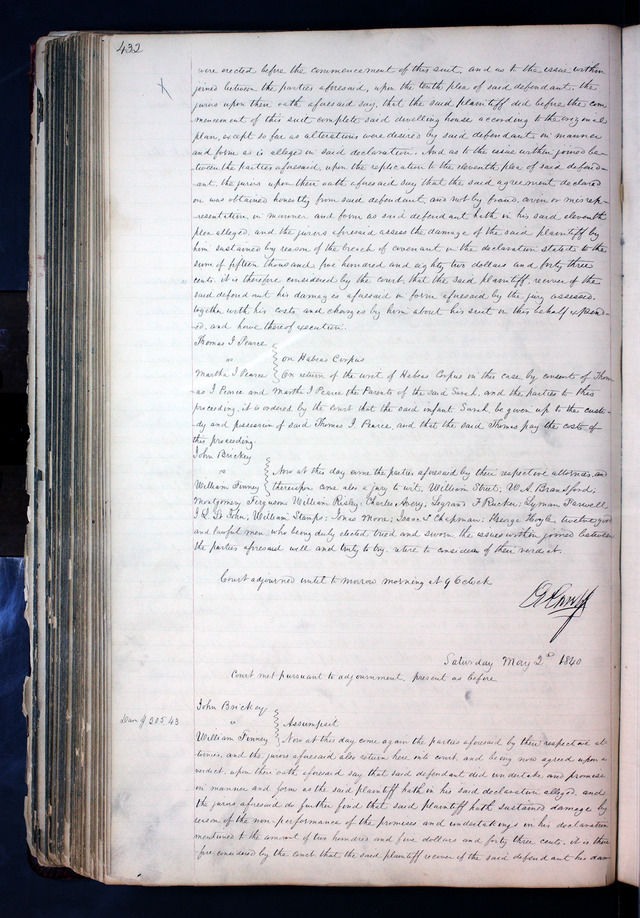 432
were erected before the commencement of this suit, and as to the issue within
joined between the parties aforesaid, upon the tenth plea of said defendant, the
jurors upon their oath aforesaid say, that the said plaintiff did before the com
mencement of this suit complete said dwelling house according to the original
plan, except so far as alterations were desired by said defendant in manner
and form as is alleged in said declaration. And as to the issue within joined be
tween the parties aforesaid, upon the replication to the eleventh plea of said defend
ant, the jurors upon their oath aforesaid say that the said agreement declared
on was obtained honestly from said defendant and not by fraud, covin or misrep
resentation in manner and form as said defendant hath in his said eleventh
plea alleged, and the jurors aforesaid assess the damage of the said plaintiff by
him sustained by reason of the breach of covenant in the declaration stated to the
sum of fifteen thousand five hundred and eighty two dollars and forty three
cents. it is therefore considered by the court that the said plaintiff, recover of the
said defendant his damages aforesaid in form aforesaid by the jury assessed.
together with his costs and charges by him about his suit in this behalf expend
ed. and have thereof execution.
Thomas I Pearce
vs on Habeas Corpus
Martha I Pearce On return of the writ of Habeas Corpus in this case, by consent of Thom
as I Pearce and Martha I Pearce the Parents of the said Sarah, and the parties to this
proceeding, it is ordered by the court that the said infant Sarah be given up to the custo
dy and possession of said Thomas I. Pearce, and that the said Thomas pay the costs of
this proceeding.
John Brickey
vs Now at this day come the parties aforesaid by their respective attornies, and
William Finney thereupon came also a jury to wit, William Street; W. A. Bransford;
Montgomery Ferguson William Risley; Charles Avery; F Rucker; Lyman Farwell
I L St John; William Stamps; Jonas Moore; Isaac Chapman; George Hoyle twelve good
and lawful men who being duly elected tried and sworn the issues within joined between
the parties aforesaid well and truly to try. retire to consider of their verdict.
Court adjourned until to morrow morning at 9 Oclock
Saturday May 2d 1840
Court met pursuant to adjournment present as before
John Brickey
Dam of 205.43 vs Assumpsit
William Finney Now at this day come again the parties aforesaid by their respective at
tornies, and the jurors aforesaid also return here into court and being now agreed upon a
verdict, upon their oath aforesaid say that said defendant did undertake and promise
in manner and form as the said plaintiff hath in his said declaration alleged, and
the jurors aforesaid do further find that said plaintiff hath sustained damage by
reason of the non-performance of the promises and undertakings in his declaration
mentioned to the amount of two hundred and five dollars and forty three cents. it is there
fore considered by the court that the said plaintiff recover of the said defendant his dam